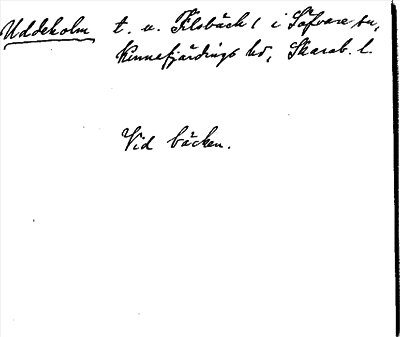 Uddeholm t. u. Filsbäck 1 i Söfvare sn,
Kinnefjärdings hd, Skarab. l.
Vid bäcken.